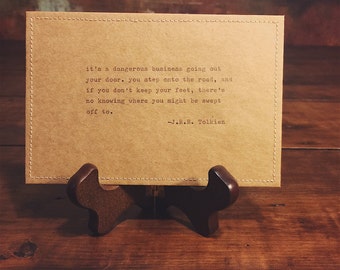 it's a dangerous business going out
your door. you step onto the road, and
if you don't keep your feet, there's
no knowing where you might be swept
off to.
-J.R.R. Tolkien